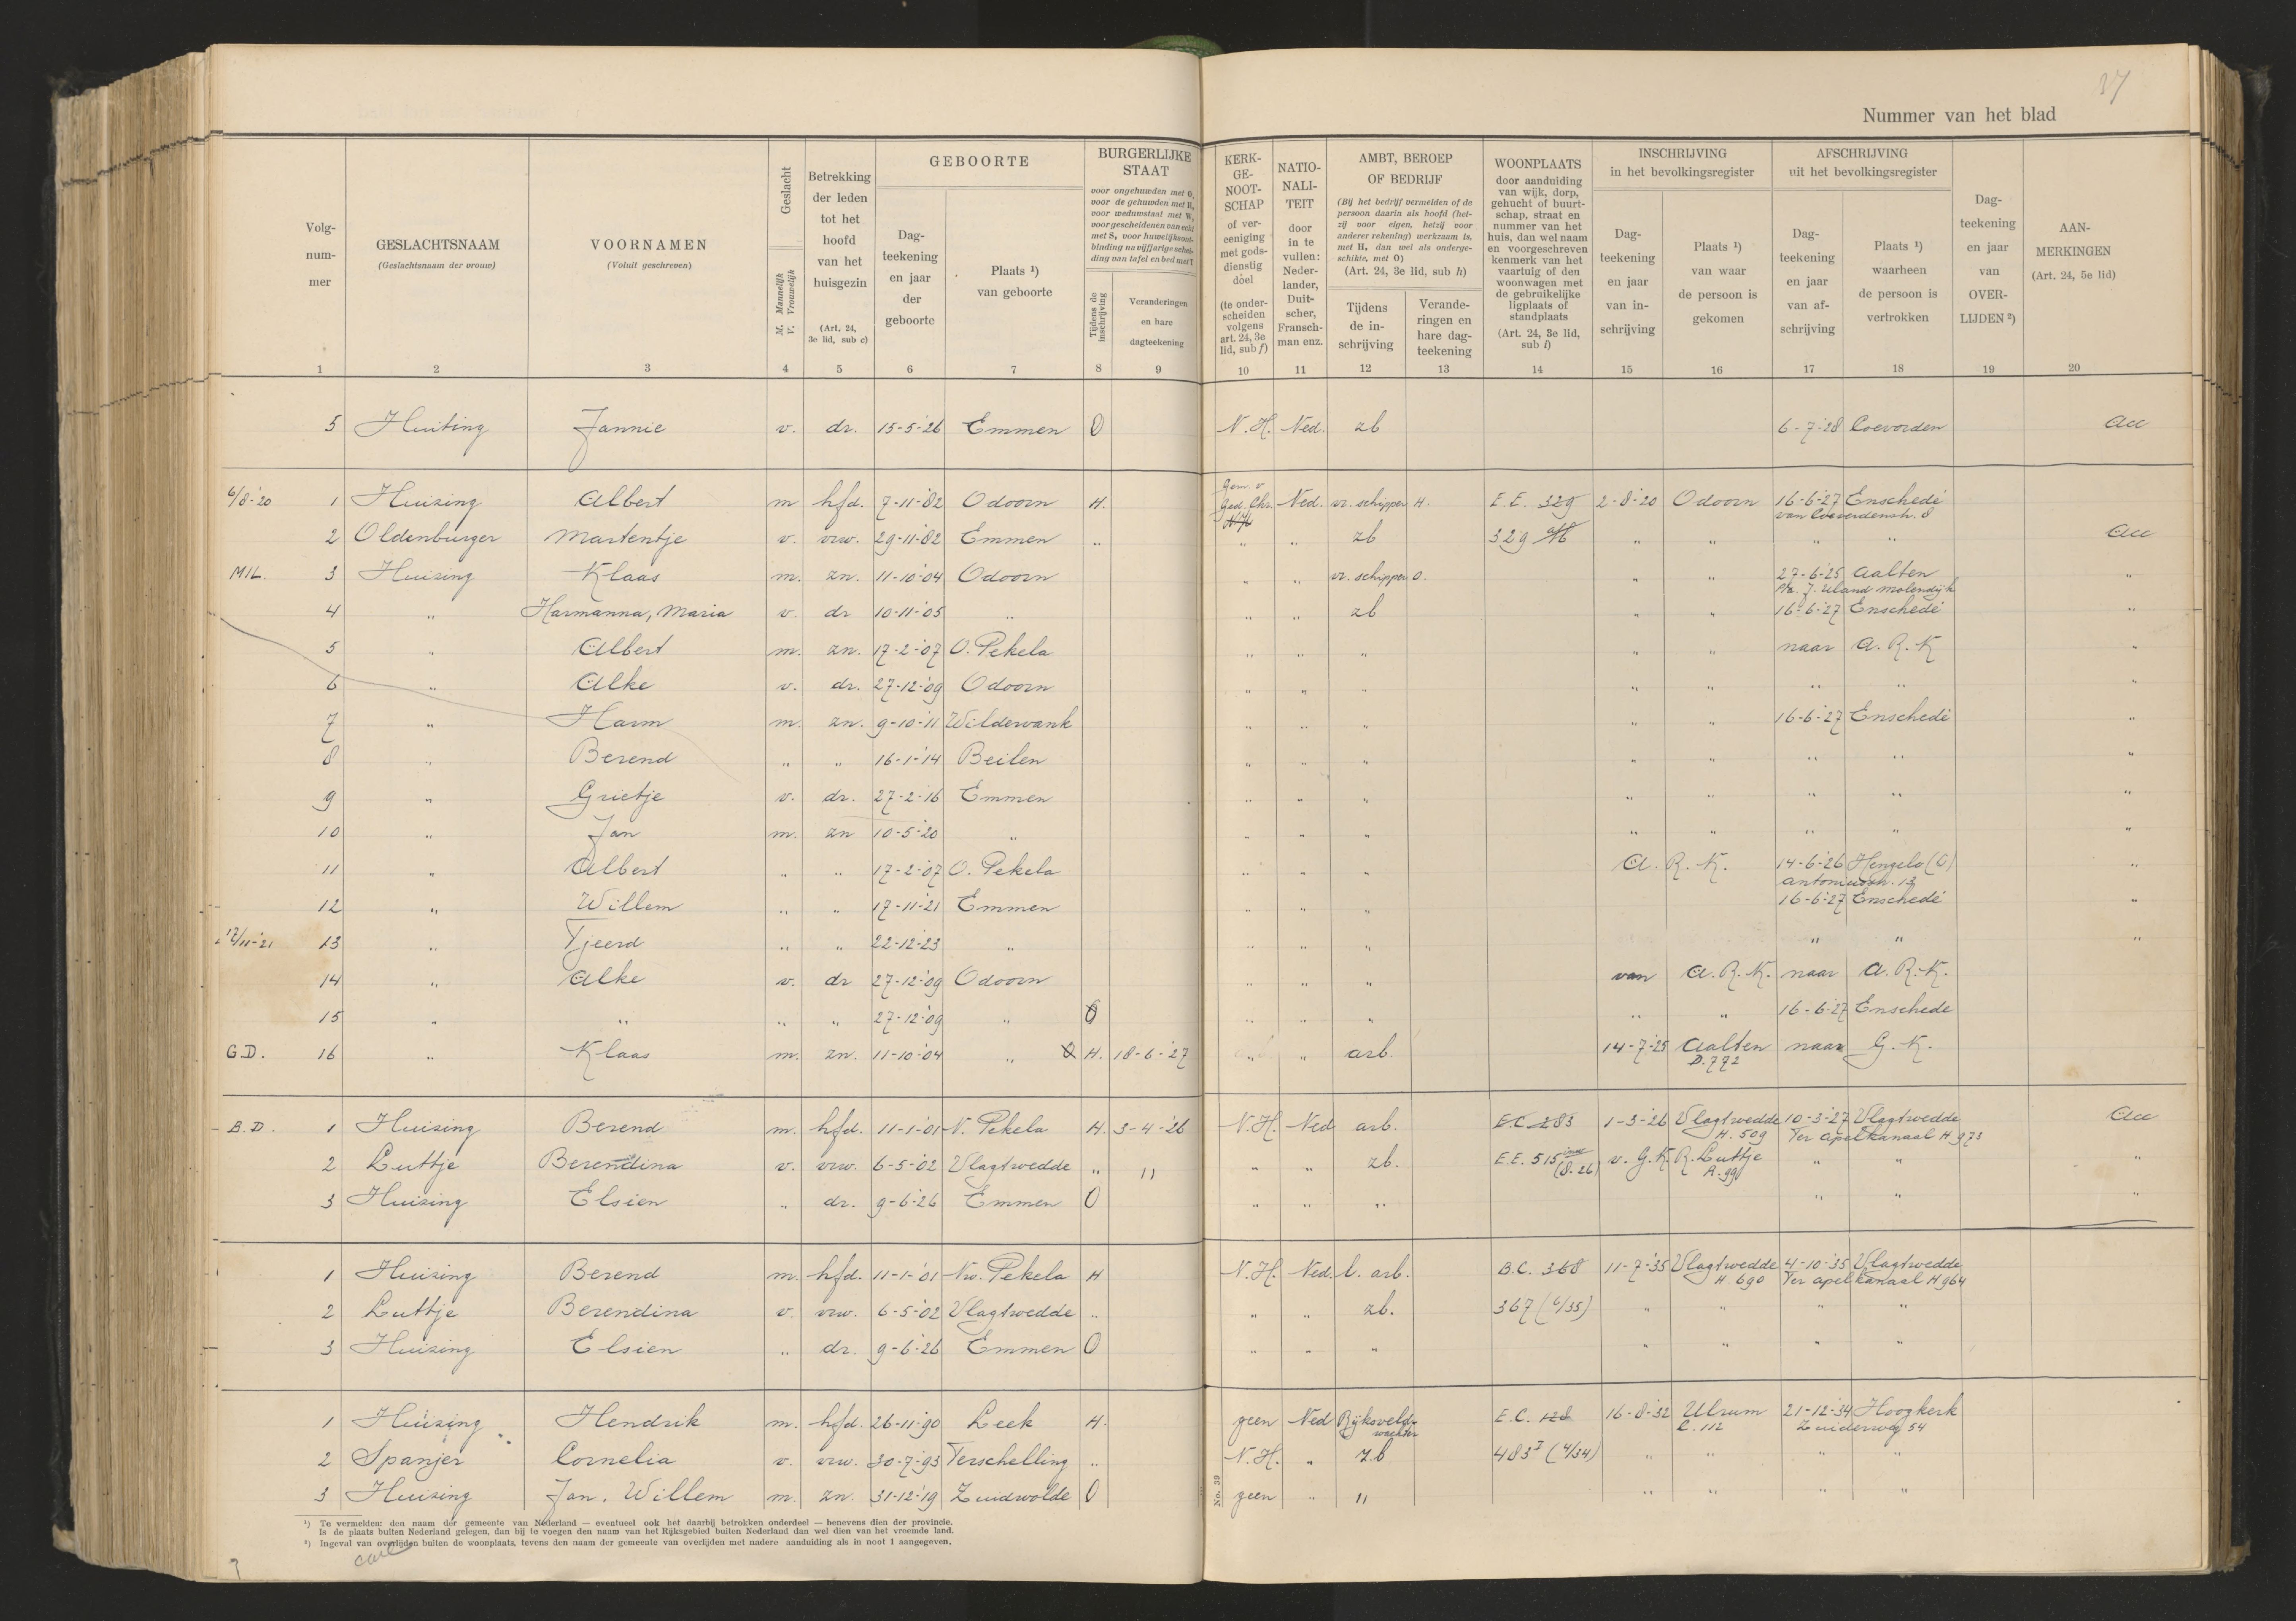 37
Nummer van het blad
Volg-nummer
GESLACHTSNAAM (Geslachtsnaam der vrouw)
VOORNAMEN (Voluit geschreven)
Geslacht M. Mannelijk V. Vrouwelijk
Betrekking der leden tot het hoofd van het huisgezin (Art. 24, 3e lid, sub c)
GEBOORTE
Dag-teekening en jaar der geboorte
Plaats ¹) van geboorte
BURGERLIJKE STAAT
voor ongehuwden met O, voor de gehuwden met H, voor weduwstaat met W, voor gescheidenen van echt met S, voor huwelijksont-binding na vijfjarige schei-ding van tafel en bed met T
Tijdens de inschrijving
Veranderingen en hare dagteekening
KERK-GE-NOOT-SCHAP of ver-eeniging met gods-dienstig doel (te onder-scheiden volgens art. 24, 3e lid, sub f)
NATIO-NALI-TEIT door in te vullen: Neder-lander, Duit-scher, Fransch-man enz.
AMBT, BEROEP OF BEDRIJF
(Bij het bedrijf vermelden of de persoon daarin als hoofd (het-zij voor eigen, hetzij voor anderer rekening) werkzaam is, met H, dan wel als onderge-schikte, met O) (Art. 24, 3e lid, sub h)
Tijdens de in-schrijving
Verande-ringen en hare dag-teekening
WOONPLAATS door aanduiding van wijk, dorp, gehucht of buurt-schap, straat en nummer van het huis, dan wel naam en voorgeschreven kenmerk van het vaartuig of den woonwagen met de gebruikelijke ligplaats of standplaats (Art. 24, 3e lid, sub i)
INSCHRIJVING in het bevolkingsregister
Dag-teekening en jaar van in-schrijving
Plaats ¹) van waar de persoon is gekomen
AFSCHRIJVING uit het bevolkingsregister
Dag-teekening en jaar van af-schrijving
Plaats ¹) waarheen de persoon is vertrokken
Dag-teekening en jaar van OVER-LIJDEN ²)
AAN-MERKINGEN (Art. 24, 5e lid)
1 2 3 4 5 6 7 8 9 10 11 12 13 14 15 16 17 18 19 20
5 Huiting Jannie v. dr. 15-5-'26 Emmen O N.H. Ned. zb 6-7-'28 Coevorden acc
6/8-'20 1 Huizing Albert m hfd. 7-11-'82 Odoorn H. Gem. v Ged. Chr. N.H. Ned. vr. schipper H. E.E. 329 2-8-'20 Odoorn 16-6-'27 Enschedé
van Coeverdenstr. 8
2 Oldenburger Martentje v. vrw. 29-11-'82 Emmen „ „ „ zb 329 „ „ „ „ acc
MIL. 3 Huizing Klaas m. zn. 11-10-'04 Odoorn „ „ vr. schipper O. „ „ 27-6-'25 Aalten „
J. Uland molendijk
4 „ Harmanna, Maria v. dr 10-11-'05 „ „ „ zb „ „ 16-6-'27 Enschedé „
5 „ Albert m. zn. 17-2-'07 O. Pekela „ „ „ „ „ naar A.R.K „
6 „ Alke v. dr. 27-12-'09 Odoorn „ „ „ „ „ „ „ „
7 „ Harm m. zn. 9-10-'11 Wildervank „ „ „ „ „ 16-6-'27 Enschedé „
8 „ Berend „ „ 16-1-'14 Beilen „ „ „ „ „ „ „ „
9 „ Grietje v. dr. 27-2-'16 Emmen „ „ „ „ „ „ „ „
10 „ Jan m. zn 10-5-'20 „ „ „ „ „ „ „ „ „
11 „ Albert „ „ 17-2-'07 O. Pekela „ „ „ A.R.K. 14-6-'26 Hengelo (O) „
12 „ Willem „ „ 17-11-'21 Emmen „ „ „ 16-6-'27 Enschedé „
17/11-'21 13 „ Tjeerd „ „ 22-12-'23 „ „ „ „ „ „ „
14 „ Alke v. dr 27-12-'09 Odoorn „ „ „ van A.R.K. naar A.R.K.
15 „ „ „ „ 27-12-'09 „ O „ „ „ „ „ 16-6-'27 Enschede
G.D. 16 „ Klaas m. zn. 11-10-'04 „ O H. 18-6-'27 „ „ arb. 14-7-'25 Aalten naar G.K.
D. 772
B.D. 1 Huizing Berend m. hfd. 11-1-'01 N. Pekela H. 3-4-'26 N.H. Ned arb. E.C. 283 1-3-'26 Vlagtwedde 10-3-'27 Vlagtwedde acc
H. 509 Ter Apelkanaal H 973
2 Luttje Berendina v. vrw. 6-5-'02 Vlagtwedde „ „ „ „ zb. E.E. 515 (8-26) v. G.K. R. Luttje „ „ „
A. 99
3 Huizing Elsien „ dr. 9-6-'26 Emmen O „ „ „ „ „ „
1 Huizing Berend m. hfd. 11-1-'01 Nw. Pekela H N.H. Ned. l. arb. B.C. 368 11-7-'35 Vlagtwedde 4-10-'35 Vlagtwedde
H. 690 Ter Apelkanaal H 964
2 Luttje Berendina v. vrw. 6-5-'02 Vlagtwedde „ „ „ zb. 367 (6/35) „ „ „ „
3 Huizing Elsien „ dr. 9-6-'26 Emmen O „ „ „ „ „ „ „
1 Huizing Hendrik m. hfd. 26-11-'90 Leek H. geen Ned Rijksveldwachter E.C. 128 16-8-'32 Ulrum 21-12-'34 Hoogkerk
C. 112 Zuiderweg 54
2 Spanjer Cornelia v. vrw. 30-7-'93 Terschelling „ N.H. „ z.b 483 I (4/34) „ „ „ „
3 Huizing Jan, Willem m. zn. 31-12-'19 Zuidwolde O geen „ „ „ „ „ „
No. 39
¹) Te vermelden: den naam der gemeente van Nederland — eventueel ook het daarbij betrokken onderdeel — benevens dien der provincie.
Is de plaats buiten Nederland gelegen, dan bij te voegen den naam van het Rijksgebied buiten Nederland dan wel dien van het vreemde land.
²) Ingeval van overlijden buiten de woonplaats, tevens den naam der gemeente van overlijden met nadere aanduiding als in noot 1 aangegeven.